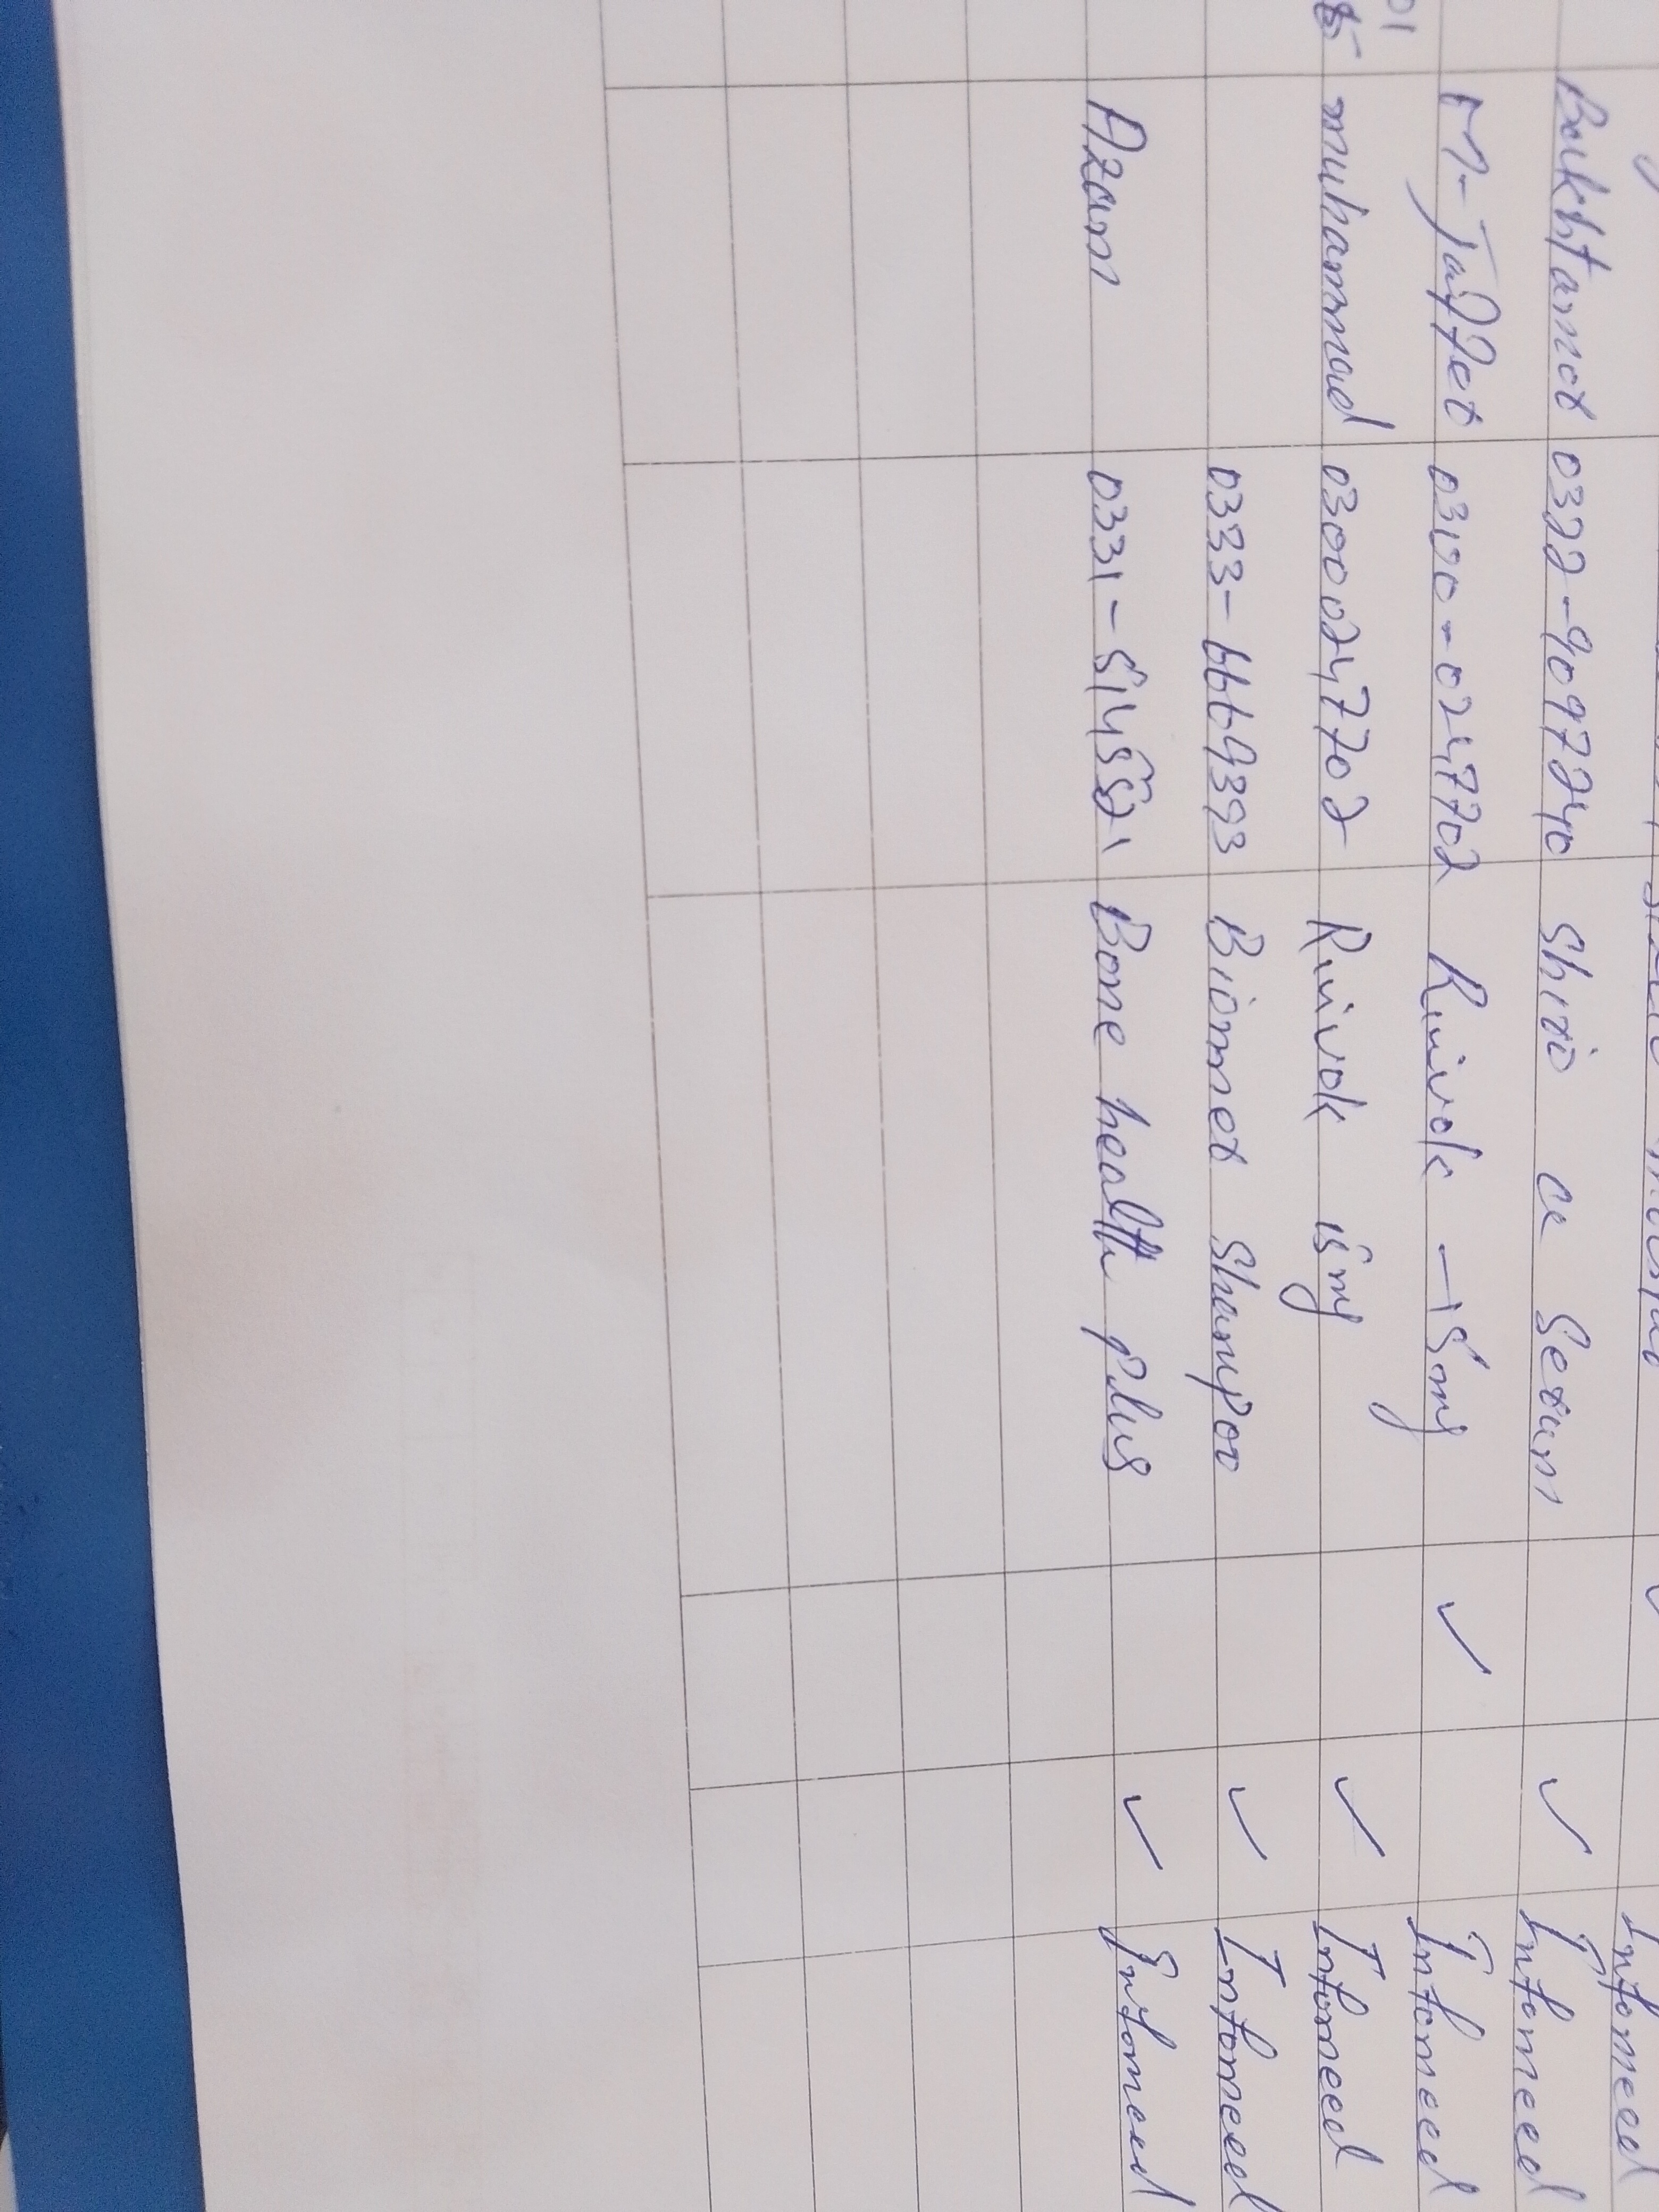 Informeed
Bakhtamor 0322-9097240 Shizo ce Serum ✓ Informeed
M-Jaffer 0300-0247702 Rinvok -15mg ✓ Informeed
muhammad 03000247702 Rinvok 15mg ✓ Informeed
0333-6669393 Biomet Shampoo ✓ Informeed
Azam 0331-5145521 Bone health plus ✓ Informeed